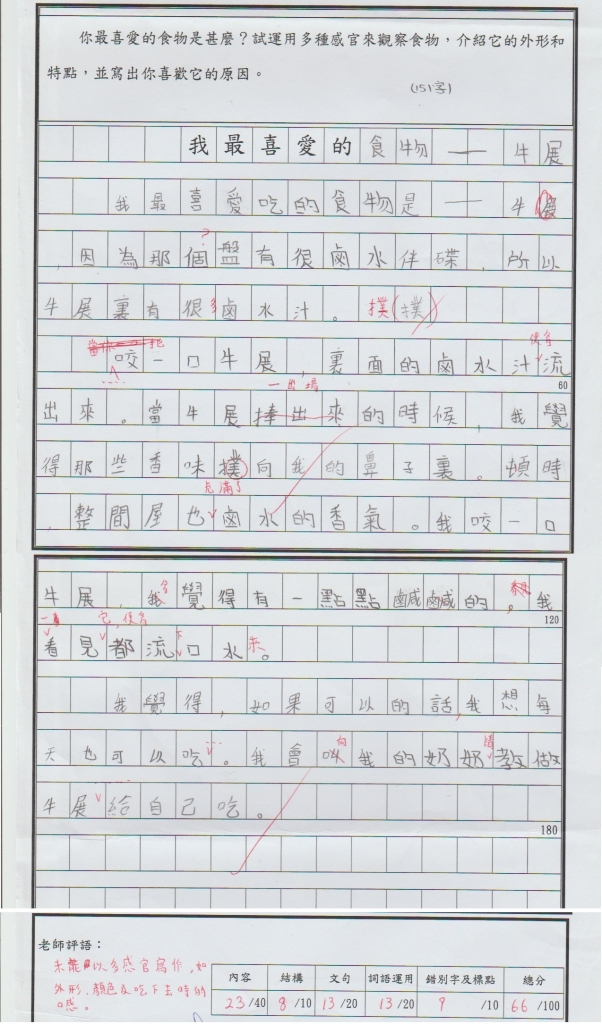 你最喜愛的食物是甚麼？試運用多種感官來觀察食物，介紹它的外形和
特點，並寫出你喜歡它的原因。
(151字)
我最喜愛的食物——牛展
我最喜愛吃的食物是——牛展
?
，因為那個盤有很鹵水伴碟，所以
牛展裏有很多鹵水汁。 撲(撲)
便會
咬一口牛展，裏面的鹵水汁流
60
一出場
出來。當牛展捧出來的時候，我覺
得那些香味撲向我的鼻子裏。頓時
充滿了
，整間屋也鹵水的香氣。我咬一口
會
牛展，我覺得有一點點鹹鹹的。我
120
一 它，便會 下
看見都流口水來。
我覺得，如果可以的話，我想每
向 請
天也可以吃。我會叫我的奶奶教做
牛展給自己吃。
180
老師評語：
未能以多感官寫作，如
外形、顏色及吃下去時的
口感。
內容 結構 文句 詞語運用 錯別字及標點 總分
23/40 8/10 13/20 13/20 9/10 66/100